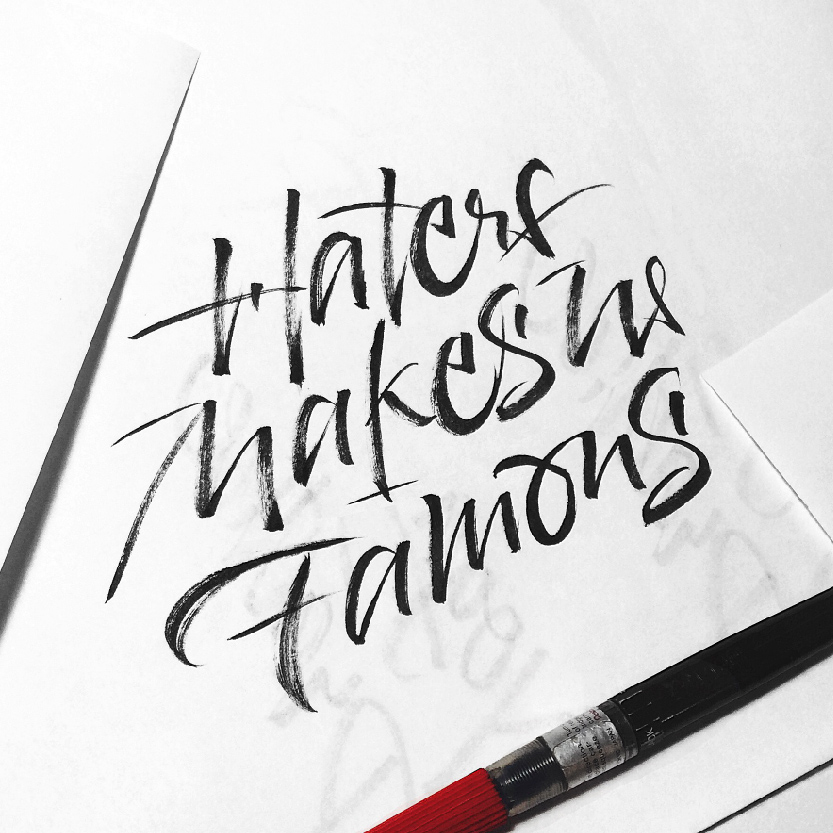 Haters
Makes us
Famous